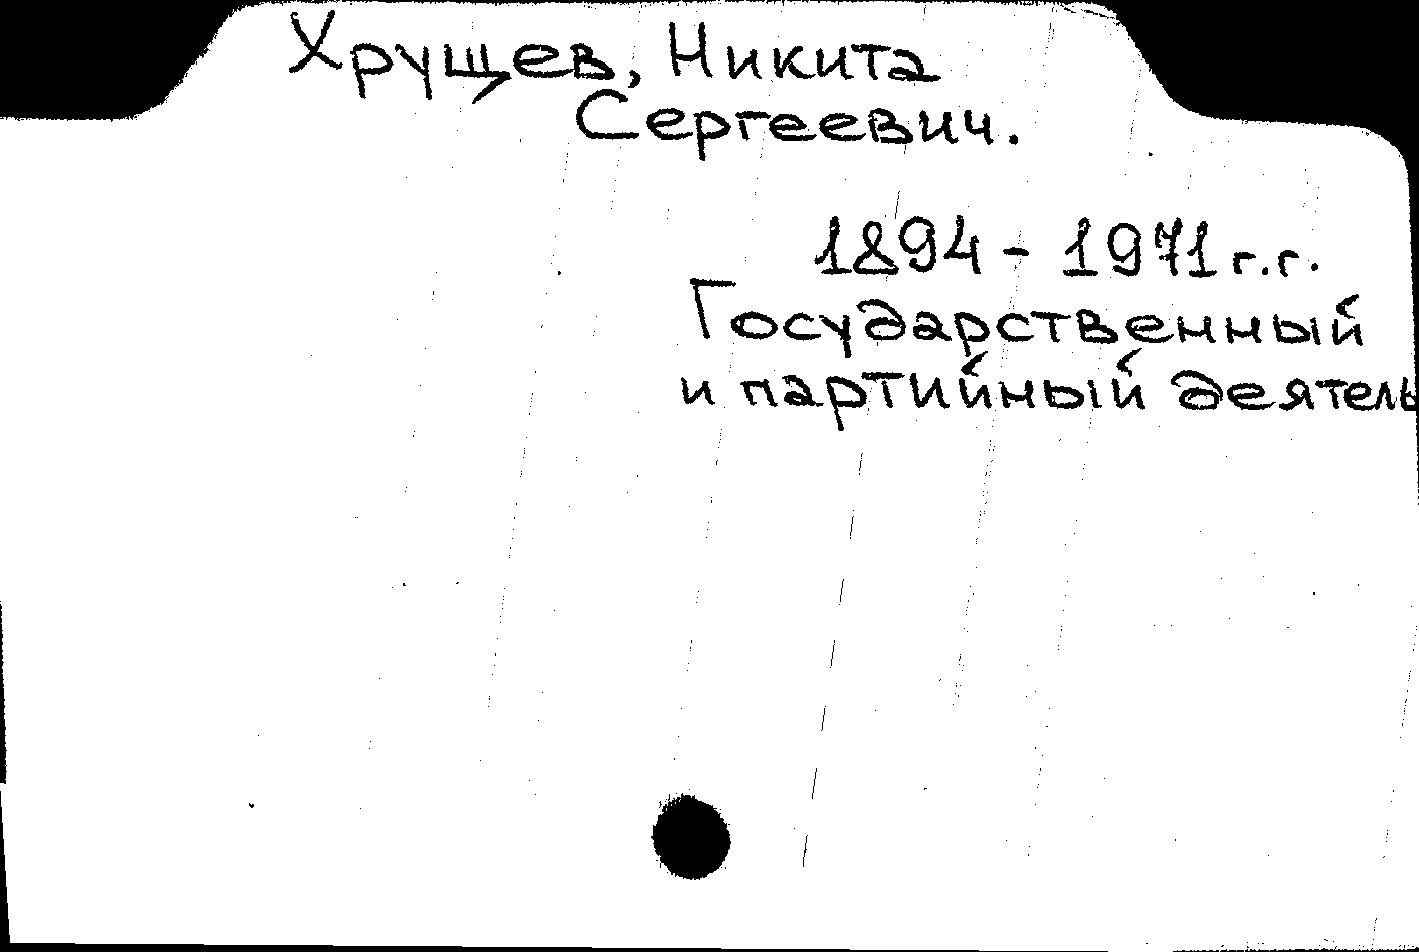 Хрущев, Никита
Сергеевич.
1894 - 1971 г.г.
Государственный
и партийный деятель